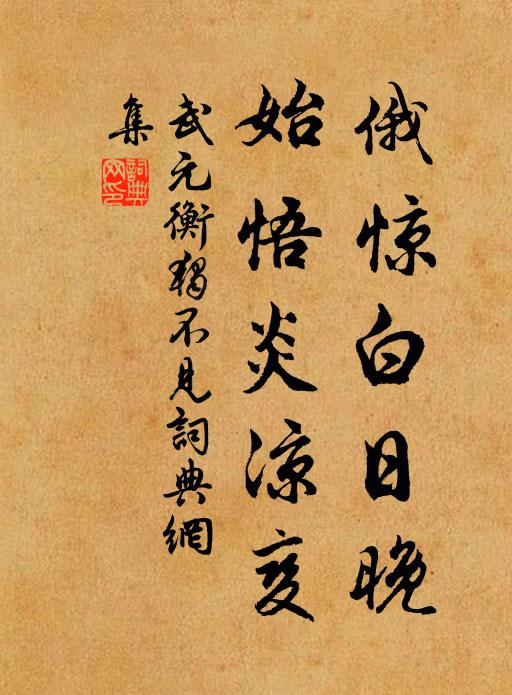 俄惊白日晚
始悟炎凉变
武元衡独不見詞典網
集
詞典網印